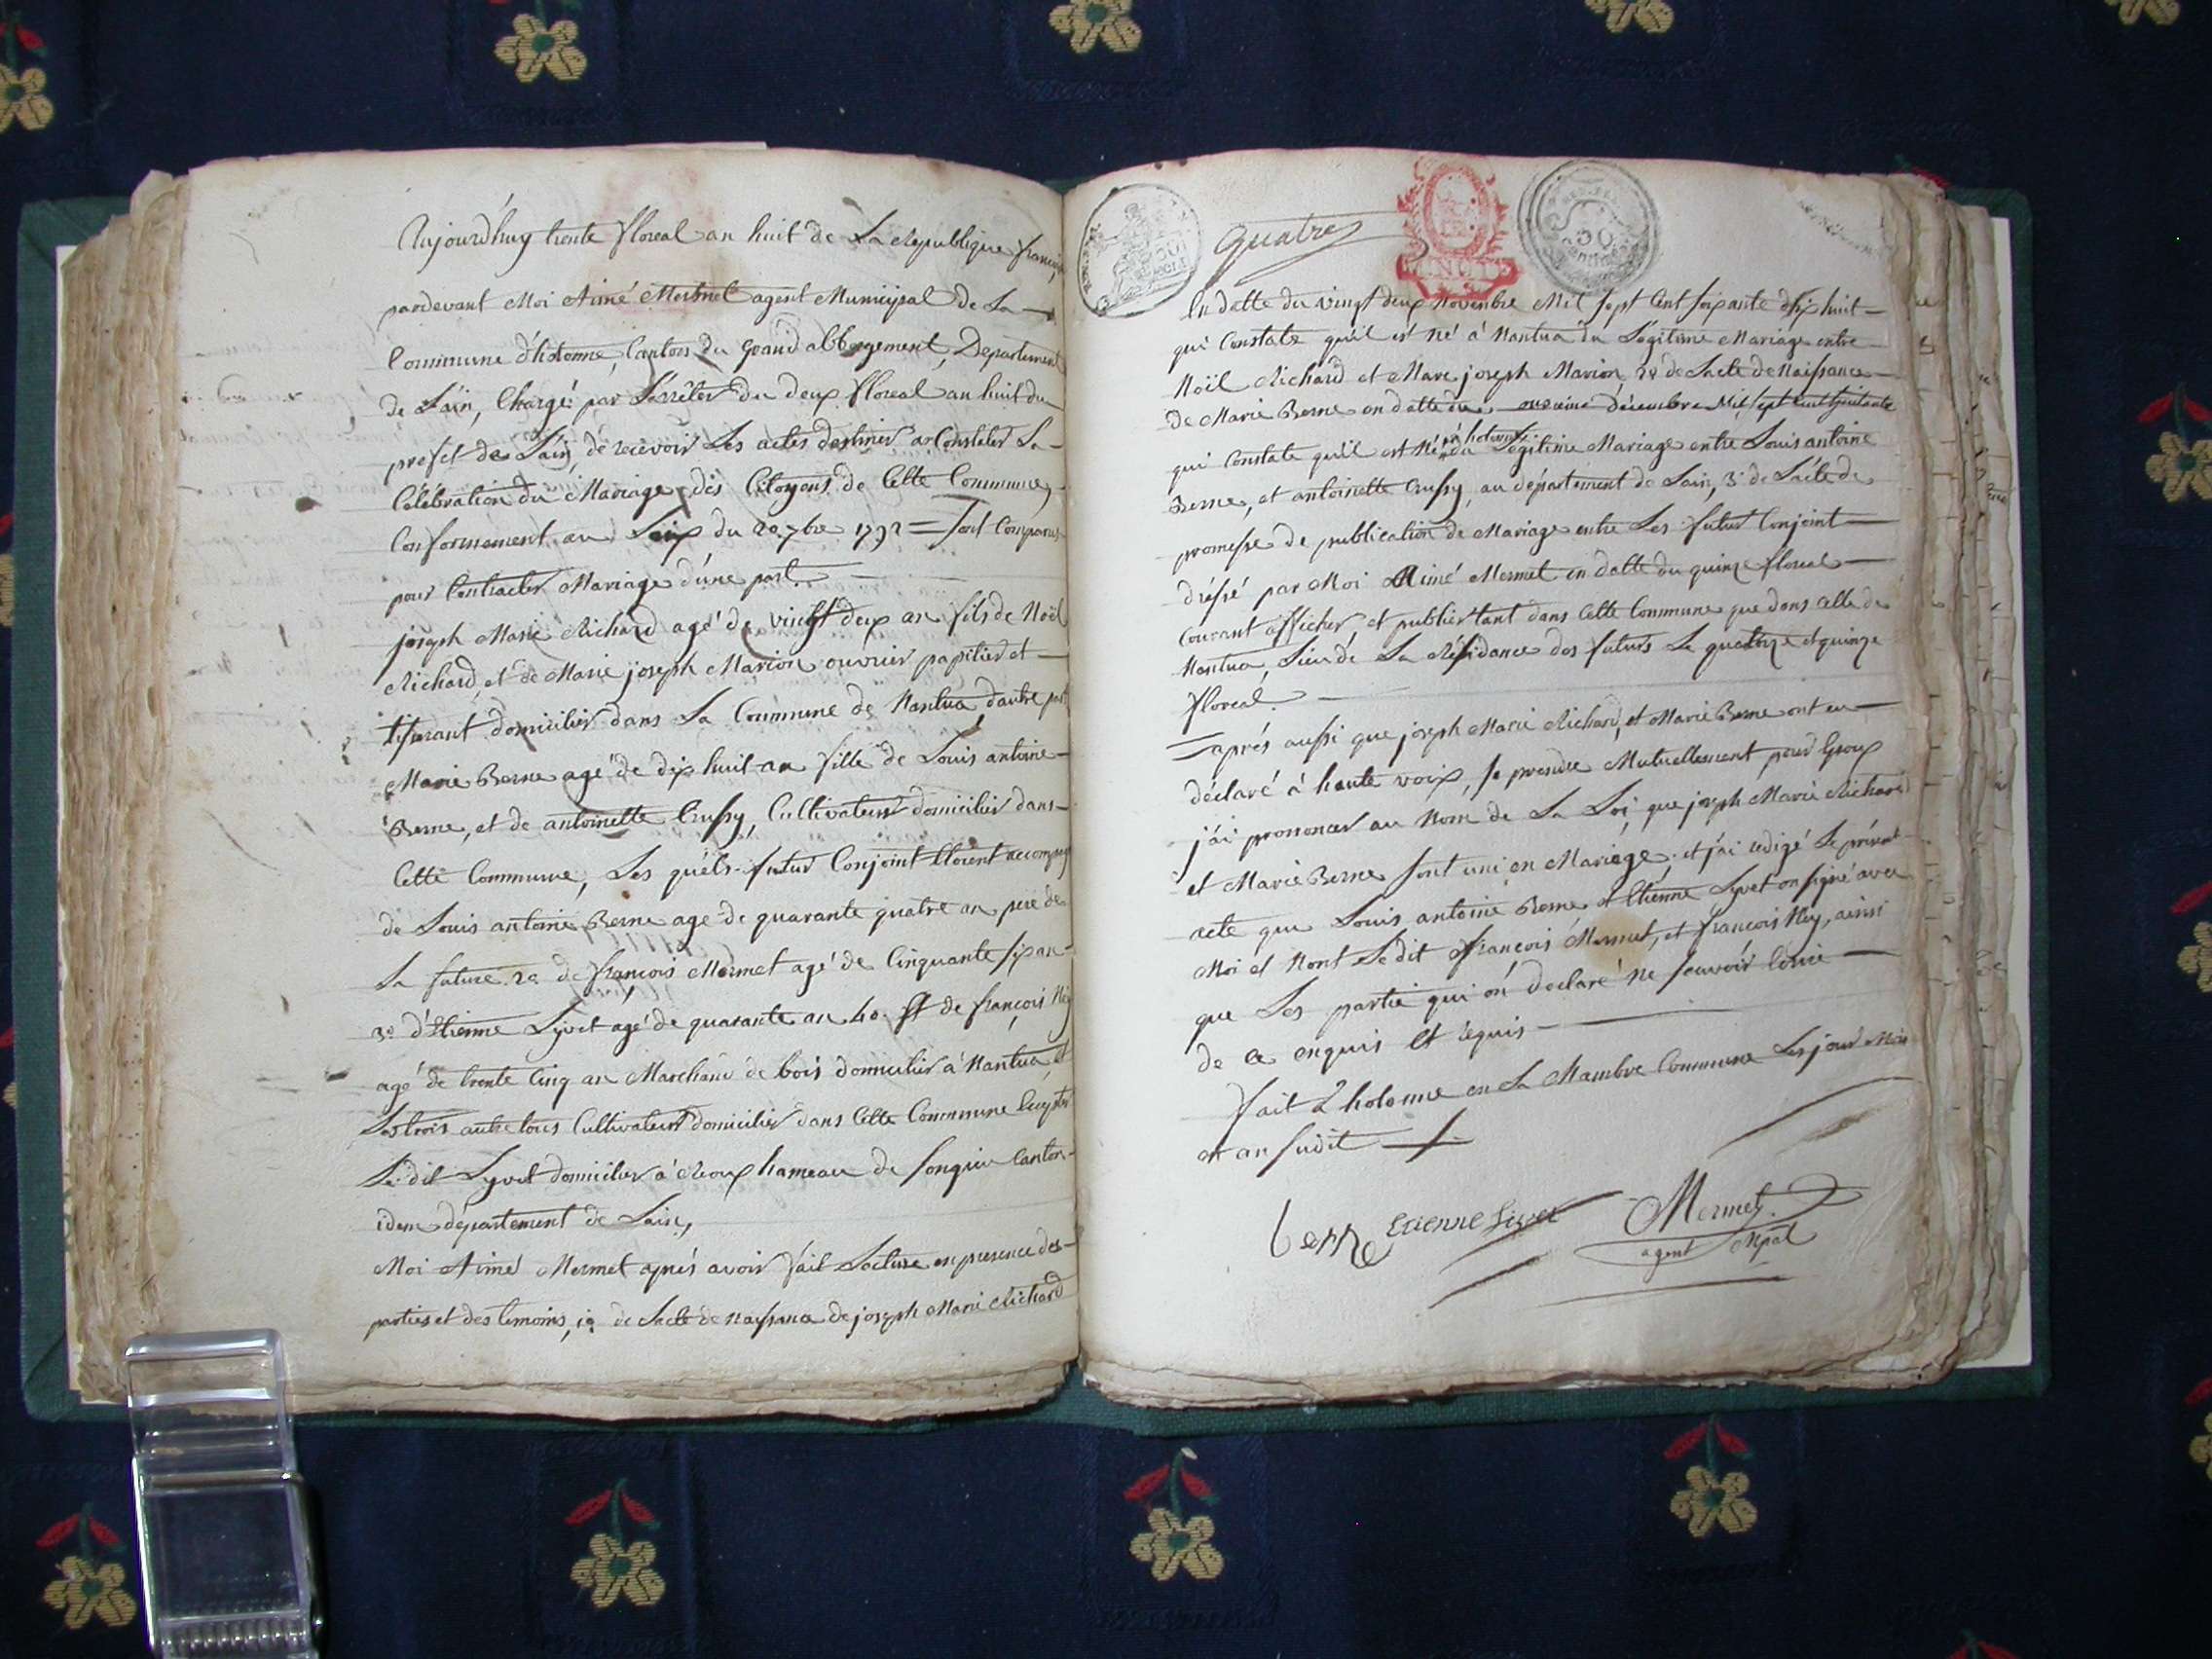 Aujourd'huy trente floreal an huit de La Republique française
pardevant Moi Aimé Mermet agent Municipal de La
Commune d'hotonne, Canton du Grand abbergement, Departement
de L'ain, Chargé par L'arrêter du deux floreal an huit du
prefet de L'ain, de recevoir Les actes destiner a Constater La
Célébration du Mariage des Citoyens de Cette Commune,
Conformement au Loix du 20 7bre 1792 = Sont Comparus
pour Contracter Mariage d'une part.
joseph Marie Richard agé de vingt deux an fils de Noël
Richard, et de Marie joseph Marion ouvrier papitier et
tisserant domicilier dans La Commune de Nantua d'autre part
Marie Berne agé de dix huit an fille de Louis antoine
Berne, et de antoinette Crussy, Cultivateur domicilier dans
Cette Commune, Les quels futur Conjoint étoient accompagné
de Louis antoine Berne agé de quarante quatre an pere de
La future 2o de françois Mermet agé de Cinquante six an
3o d'Etienne Lyvet agé de quarante an 4o et de françois Ney
agé de trente Cinq an Marchand de bois domicilier à Nantua, et
Les trois autre tous Cultivateur domicilier dans Cette Commune Excepter
Le dit Lyvet domicilier à hameau de Songieu Canton
idem département de L'ain,
Moi Aimé Mermet après avoir fait Lecture en presence des
parties et des temoins, 1o de L'acte de Naissance de joseph Marie Richard
quatre
MINUTE
50
En datte du vingt deux Novembre Mil sept Cent soixante dix huit
qui Constate qu'il est Né à Nantua du Légitime Mariage entre
Noël Richard et Marie joseph Marion, 2o de L'acte de Naissance
de Marie Berne en datte du onzieme décembre Mil sept cent
qui Constate qu'il est Né à hotonne du Légitime Mariage entre Louis antoine
Berne, et antoinette Crussy, au département de L'ain, 3o de L'acte de
promesse de publication de Mariage entre Les futur Conjoint
dréssé par Moi Aimé Mermet en datte du quinze floreal
Courant afficher et publier tant dans Cette Commune que dans celle de
Nantua, Lieu de La Résidance des futurs Le quatorze et quinze
floreal.
= après aussi que joseph Marie Richard, et Marie Berne ont eu
déclaré à haute voix, se prendre Mutuellement pour Epoux
j'ai prononcer au Nom de La Loi, que joseph Marie Richard
et Marie Berne sont uni en Mariage, et j'ai redigé Le présent
acte que Louis antoine Berne et Etienne Lyvet on signé avec
Moi et Nont Ledit françois Mermet, et françois Ney, ainsi
que Les partie qui on déclaré Ne savoir Ecrire
de ce enquis et requis
fait à hotonne en La Chambre Commune Les jour Mois
et an sudit
berne Etienne Livet Mermet
agent Mpal